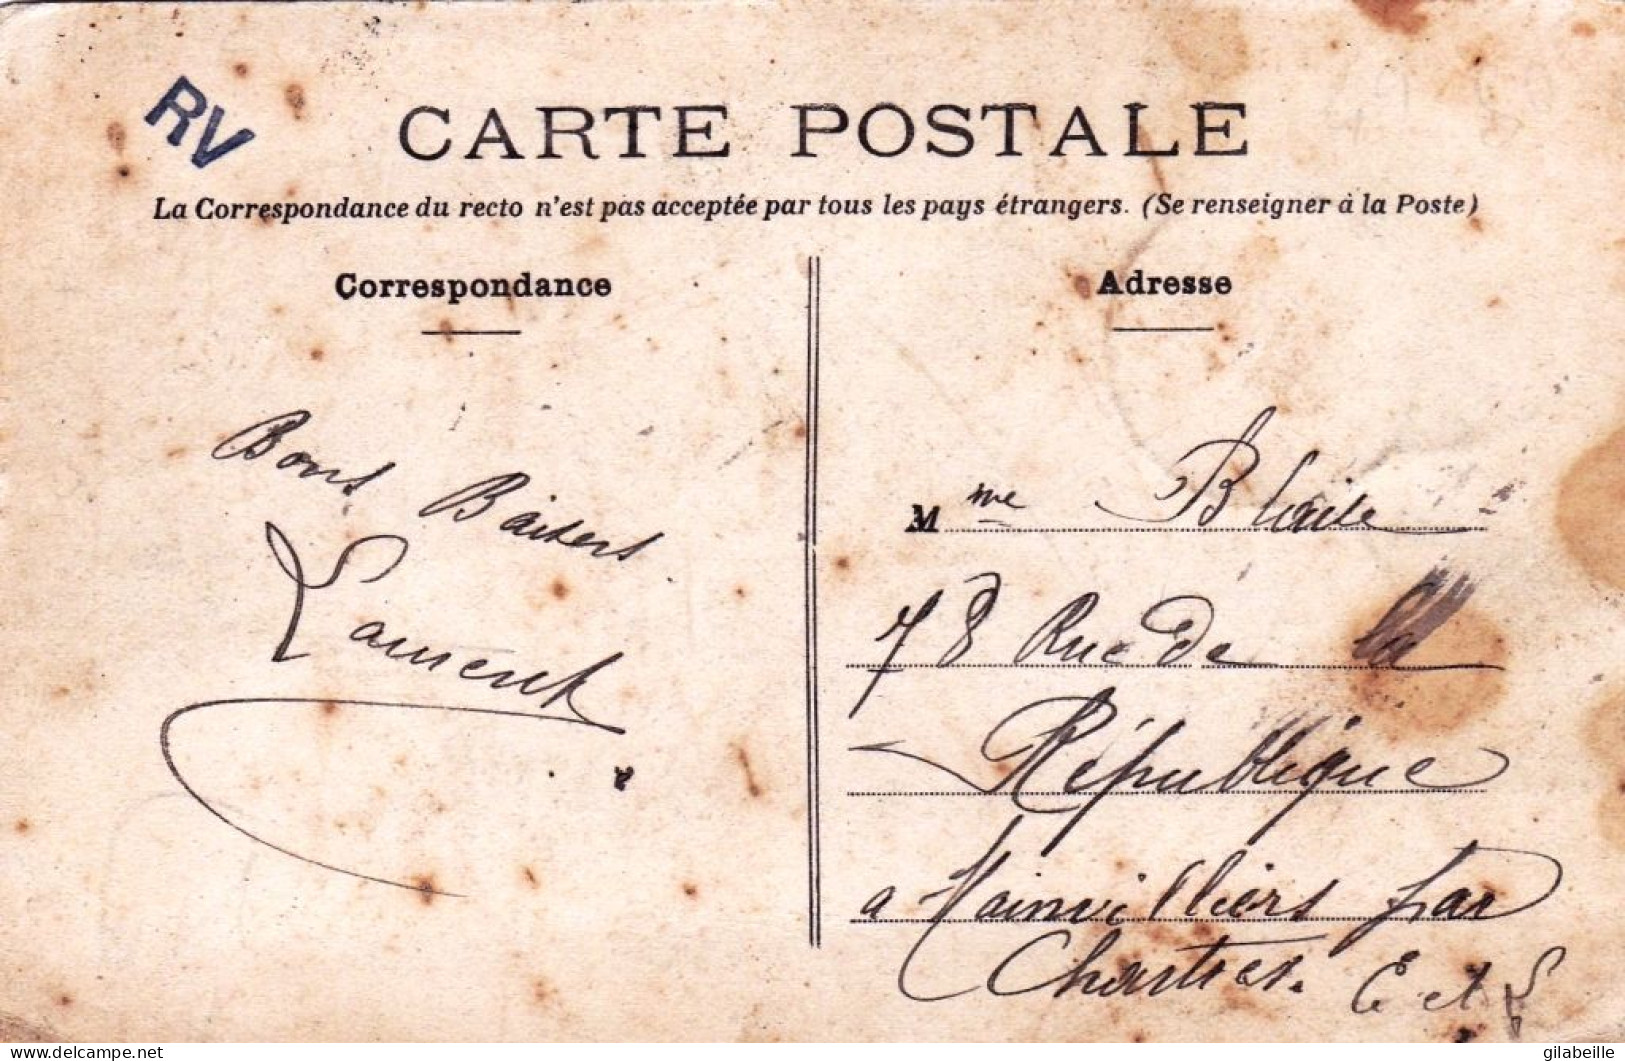 RV
CARTE POSTALE
La Correspondance du recto n'est pas acceptée par tous les pays étrangers. (Se renseigner à la Poste)
Correspondance
Bons Baisers
Laurent
Adresse
Mme
78 Rue de la
République
a Mainvilliers par
Chartres. E et L
delcampe.net
gilabeille